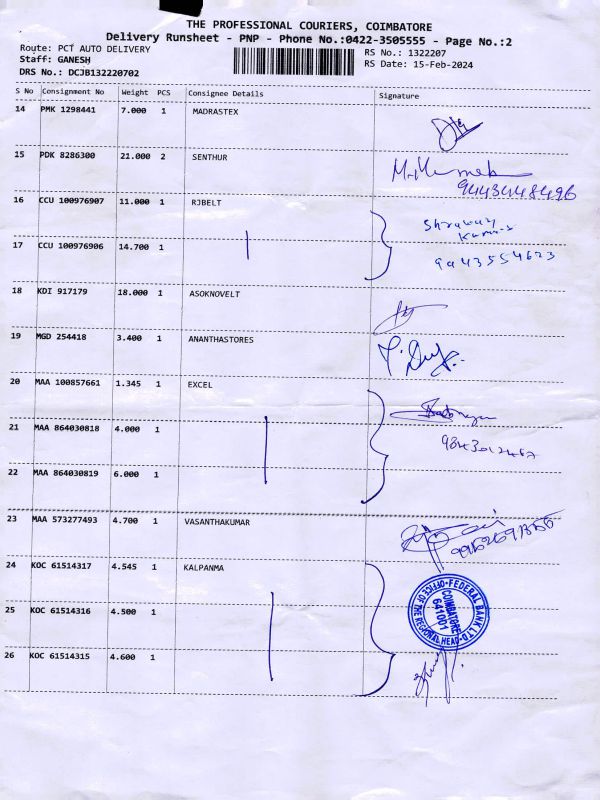 THE PROFESSIONAL COURIERS, COIMBATORE
Delivery Runsheet - PNP - Phone No.:0422-3505555 - Page No.:2
Route: PCT AUTO DELIVERY
Staff: GANESH
DRS No.: DCJB132220702
RS No.: 1322207
RS Date: 15-Feb-2024
S No Consignment No Weight PCS Consignee Details Signature
14 PMK 1298441 7.000 1 MADRASTEX
15 PDK 8286300 21.000 2 SENTHUR
9443448496
16 CCU 100976907 11.000 1 RJBELT
17 CCU 100976906 14.700 1
9443554623
18 KDI 917179 18.000 1 ASOKNOVELT
19 MGD 254418 3.400 1 ANANTHASTORES
20 MAA 100857661 1.345 1 EXCEL
21 MAA 864030818 4.000 1
22 MAA 864030819 6.000 1
23 MAA 573277493 4.700 1 VASANTHAKUMAR
24 KOC 61514317 4.545 1 KALPANMA
25 KOC 61514316 4.500 1
26 KOC 61514315 4.600 1
FEDERAL BANK LTD.
OFFICE OF THE REGIONAL HEAD
COIMBATORE
641001